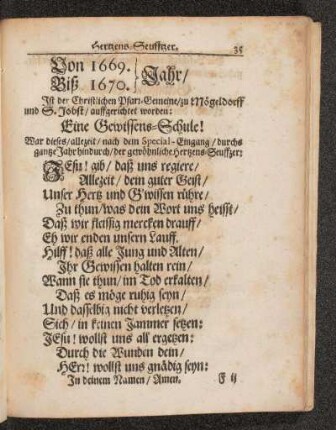 Hertzens-Seufftzer. 35
Von 1669.
Biß 1670. } Jahr/
Ist der Christlichen Pfarr-Gemeine/zu Mögeldorff
und S. Jobst/ auffgerichtet worden:
Eine Gewissens-Schule!
War dieses/allezeit/nach dem Special-Eingang/durchs
gantze Jahr hindurch/der gewöhnliche Hertzens-Seufftzer:
JEsu! gib/ daß uns regiere/
Allezeit/ dein guter Geist/
Unser Hertz und G'wissen rühre/
Zu thun/was dein Wort uns heisst/
Daß wir fleissig mercken drauff/
Eh wir enden unsern Lauff.
Hilff! daß alle Jung und Alten/
Ihr Gewissen halten rein/
Wann sie thun/ im Tod erkalten/
Daß es möge ruhig seyn/
Und dasselbig nicht verletzen/
Sich/ in keinen Jammer setzen:
JEsu! wollst uns all ergetzen:
Durch die Wunden dein/
HErr! wollst uns gnädig seyn:
In deinem Namen/ Amen.
F ij